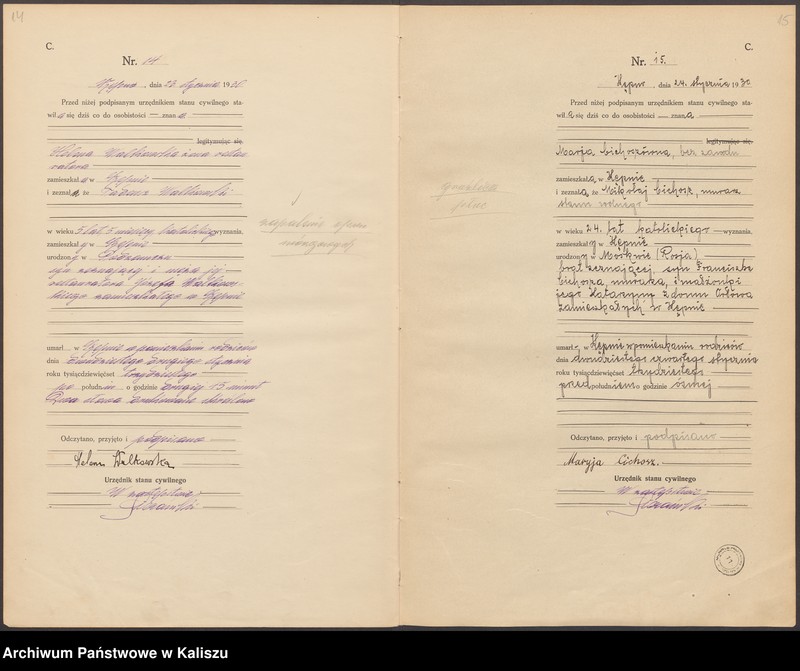 14
C.
Nr. 14
Kępno, dnia 23. stycznia 1930.
Przed niżej podpisanym urzędnikiem stanu cywilnego sta-
wiła się dziś co do osobistości — znana
legitymując się
Helena Walkowska żona
zamieszkała w Kępnie
i zeznała, że Walkowski
w wieku 5 lat, 5 miesięcy katolickiego wyznania,
zamieszkały w Kępnie
urodzony w
syn zeznającej i męża jej
Józefa
zamieszkałego w Kępnie
umarł w Kępnie w pomieszkaniu rodziców
dnia dwudziestego drugiego stycznia
roku tysiącdziewięćset trzydziestego
po południu o godzinie drugiej 15 minut
Odczytano, przyjęto i podpisano
Helena Walkowska
Urzędnik stanu cywilnego
W zastępstwie
zapalenie opon
mózgowych
15
C.
Nr. 15.
Kępno, dnia 24. stycznia 1930
Przed niżej podpisanym urzędnikiem stanu cywilnego sta-
wiła się dziś co do osobistości — znana
legitymując się
Marja Cichoszówna, bez zawodu
zamieszkała w Kępnie
i zeznała, że Mikołaj Cichosz, murarz
stanu wolnego
w wieku 24. lat katolickiego — wyznania,
zamieszkały w Kępnie
urodzony w (Rosja)
brat zeznającej, syn Franciszka
Cichosza, murarza, i małżonki
jego Katarzyny z domu
zamieszkałych w Kępnie
umarł w Kępnie w pomieszkaniu rodziców
dnia dwudziestego czwartego stycznia
roku tysiącdziewięćset trzydziestego
przed południem o godzinie ósmej
Odczytano, przyjęto i podpisano
Maryja Cichosz.
Urzędnik stanu cywilnego
W zastępstwie
gruźlica
płuc
Archiwum Państwowe w Kaliszu